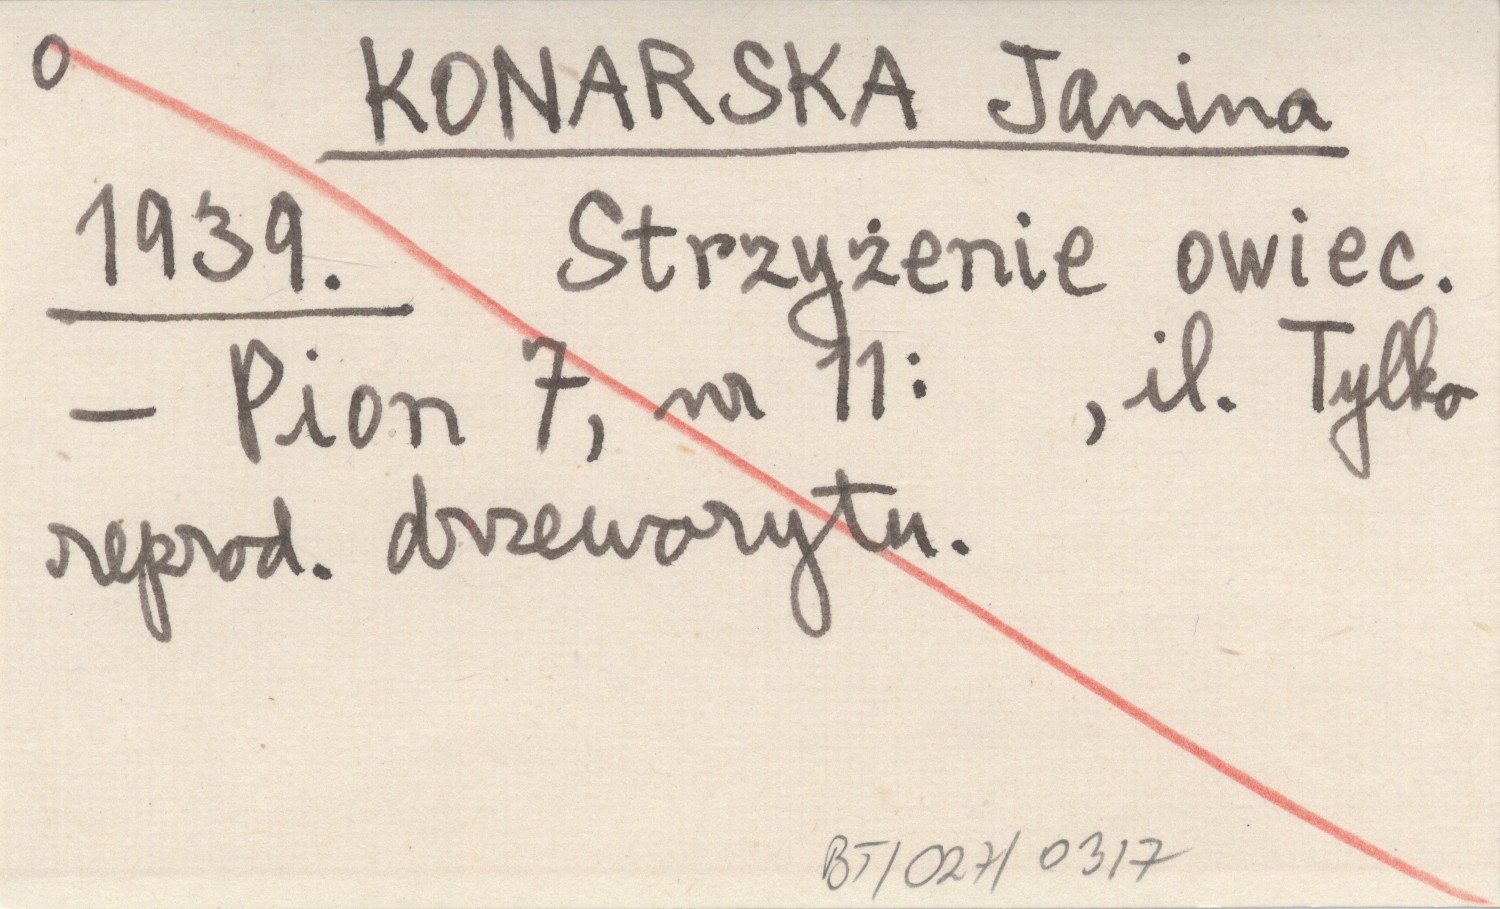 O KONARSKA Janina
1939. Strzyżenie owiec.
— Pion 7, nr 11: , il. Tylko
reprod. drzeworytu.
BT/027/0317